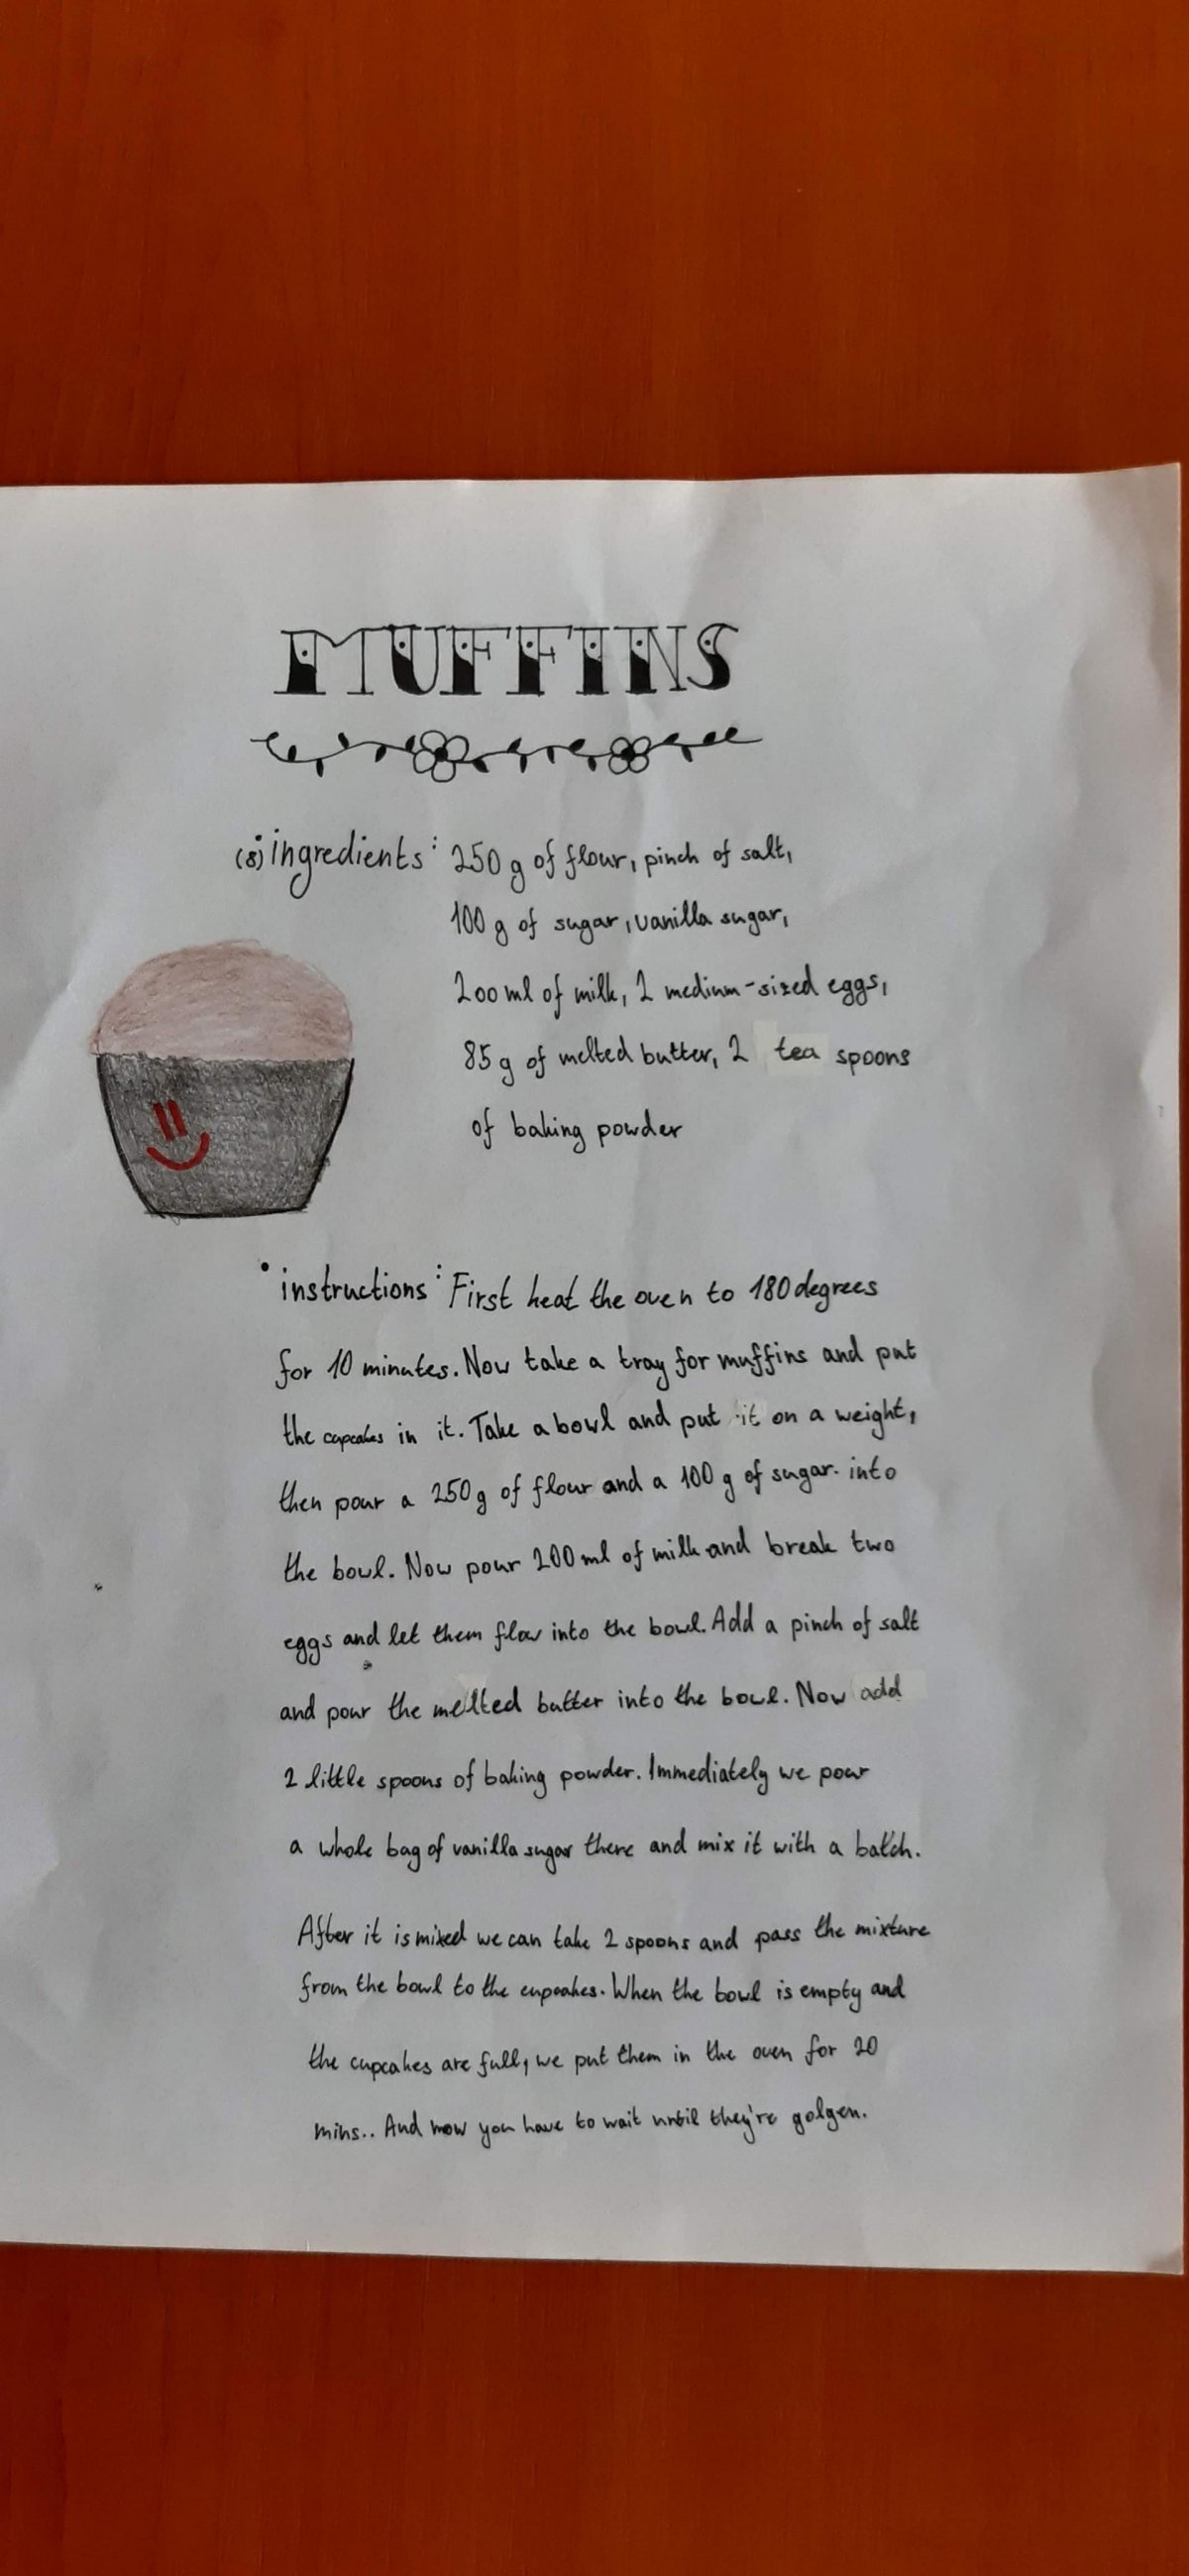 MUFFINS
(8) ingredients: 250 g of flour, pinch of salt,
100 g of sugar, vanilla sugar,
200 ml of milk, 2 medium-sized eggs,
85 g of melted butter, 2 tea spoons
of baking powder
• instructions: First heat the oven to 180 degrees
for 10 minutes. Now take a tray for muffins and put
the cupcakes in it. Take a bowl and put it on a weight,
then pour a 250 g of flour and a 100 g of sugar. into
the bowl. Now pour 200 ml of milk and break two
eggs and let them flow into the bowl. Add a pinch of salt
and pour the melted butter into the bowl. Now add
2 little spoons of baking powder. Immediately we pour
a whole bag of vanilla sugar there and mix it with a batch.
After it is mixed we can take 2 spoons and pass the mixture
from the bowl to the cupcakes. When the bowl is empty and
the cupcakes are full, we put them in the oven for 20
mins.. And now you have to wait until they're golgen.